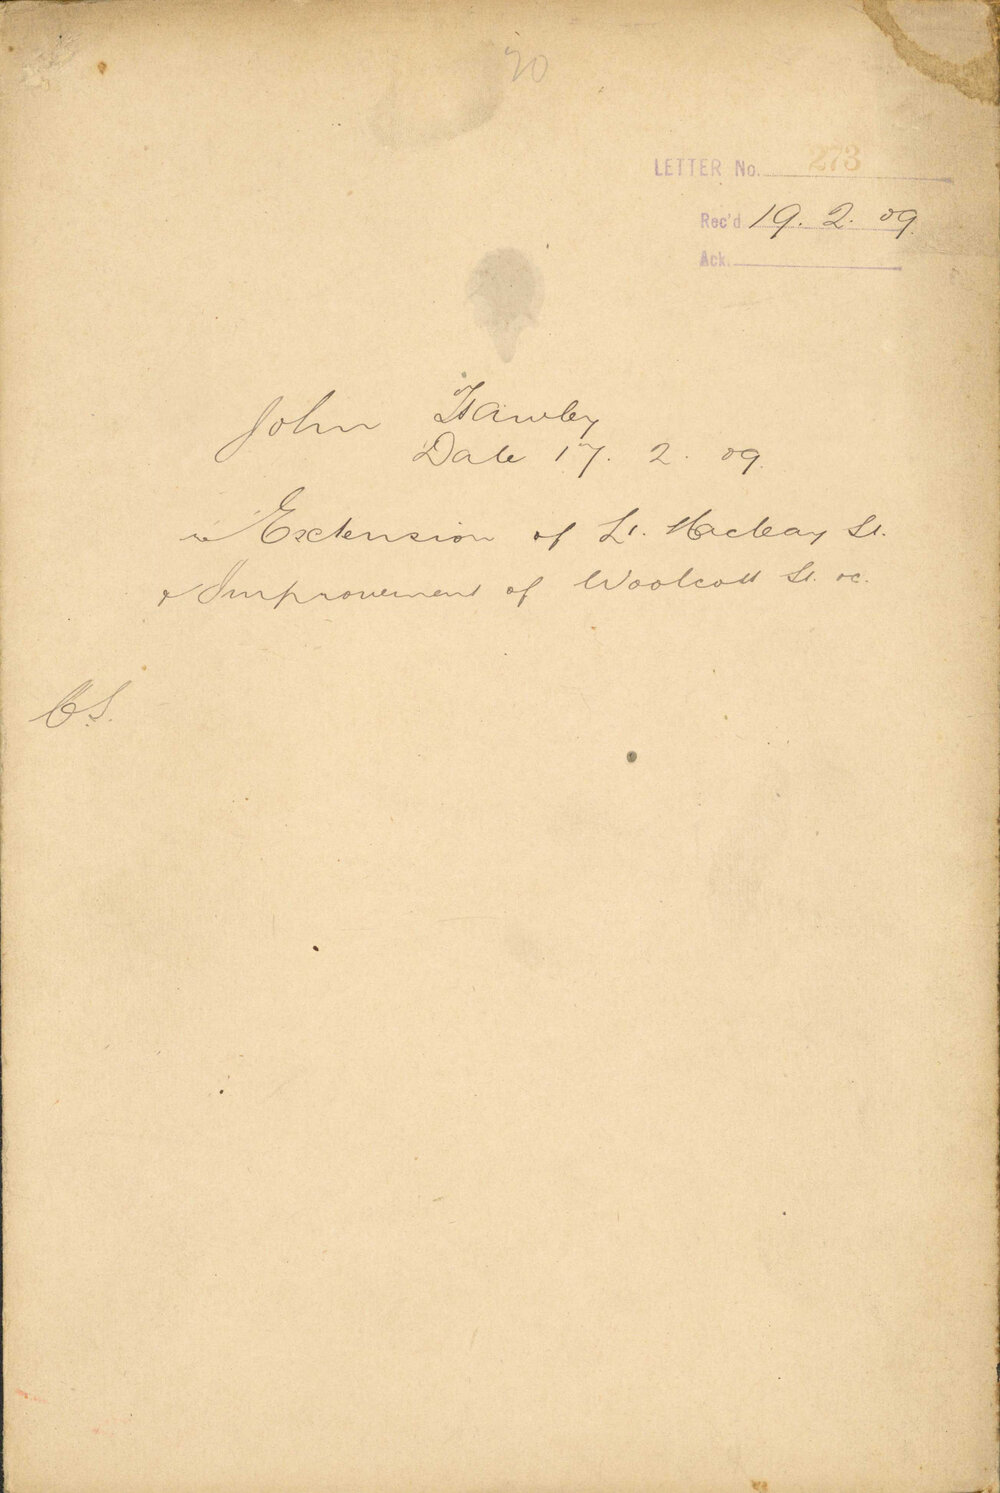 70
LETTER No. 273
Rec'd 19. 2. 09.
Ack.
John Hawley
Date 17. 2. 09.
re Extension of Lt. Macleay St.
& Improvement of Woolcott St. &c.